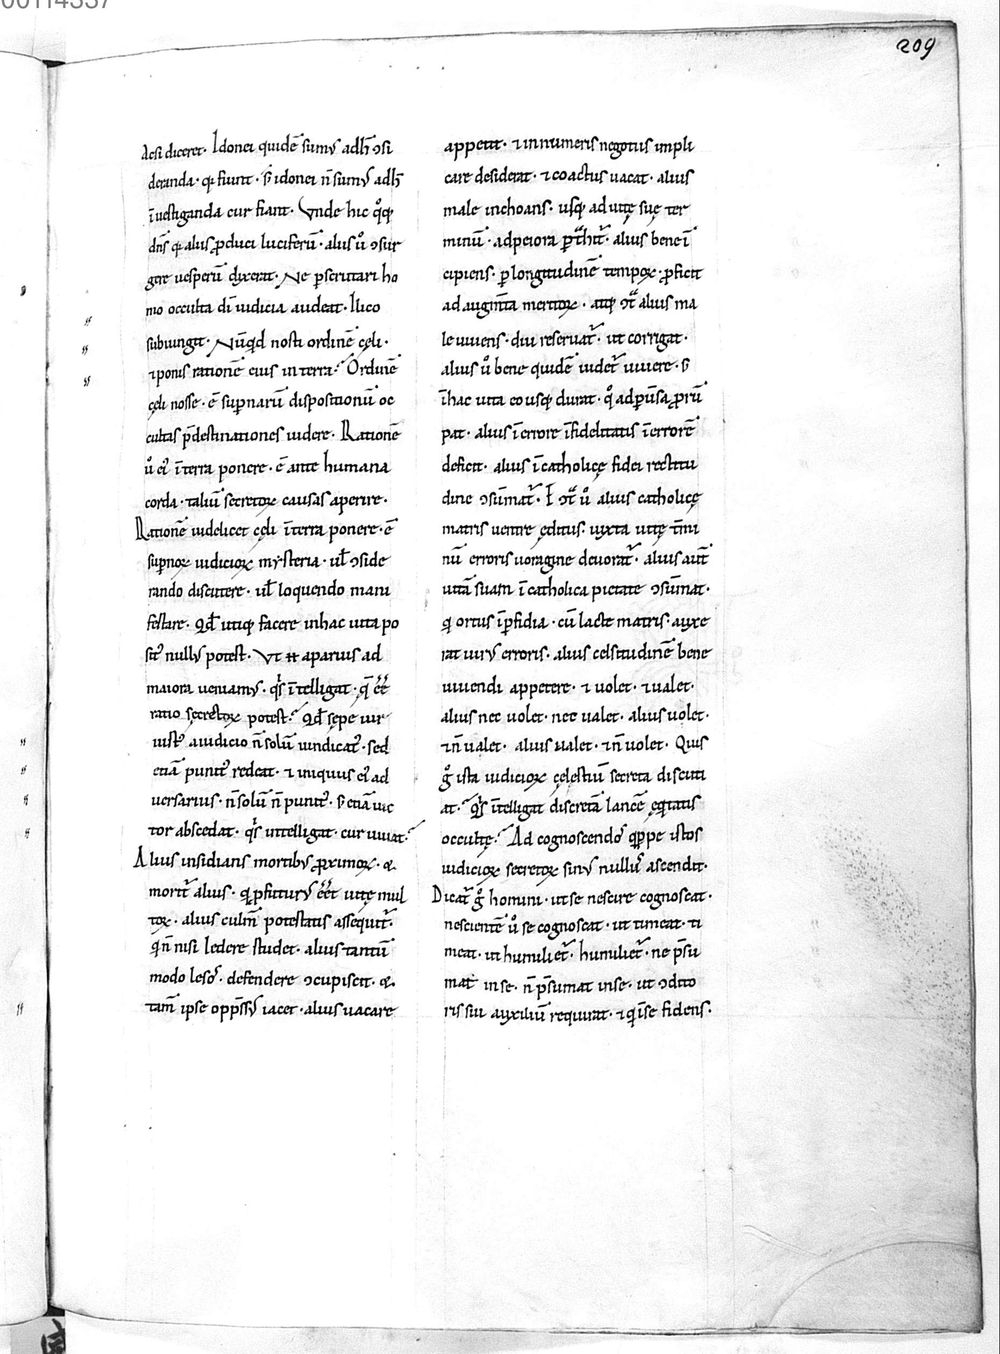 00114337
209
Acsi diceret. Idonei quidē sumꝰ adh̄ ↄsi
deranda. q̨ fiunt. s̄ idonei n̄ sumꝰ adh̄
īuestiganda cur fiant. Vnde hic q̊q̨
dn̄s q̨ alios ꝓduci luciferū. alios ů ↄsur
gere uesperū dixerat. Ne ꝑscrutari ho
mo occulta dī iudicia audeat. Ilico
subiungit. Nūq̇d nosti ordinē cęli.
⁊ ponis rationē eius in terra? Ordinē
cęli nosse. ē suꝑnarū dispositionū oc
cultas p̄destinationes uidere. Rationē
ů ei͛ īterra ponere. ē ante humana
corda. taliū secretoꝝ causas aperire.
Rationē uidelicet cęli īterra ponere. ē
suꝑnoꝝ iudicioꝝ mysteria. ul̄ ↄside
rando discutere. ul̄ loquendo mani
festare. Qd̄ utiq̨ facere inhac uita po
sit᷒ nullꝰ potest. Vt ħ aparuis ad
maiora ueniamꝰ. q̇s ītelligat. q̄ ēē
ratio secretoꝝ potest? Qd̄ sepe uir
iust᷒ aiudicio n̄ solū uindicat᷒. sed
etiā punit᷒ redeat. ⁊ iniquus ei͛ ad
uersarius. n̄ solū n̄ punit᷒. s̄ etiā uic
tor abscedat. q̇s intelligat. cur uiuat?
Alius insidians mortibꝰ ꝓximoꝝ. &
morit᷒ alius. q̇ ꝓfuturꝰ ēēt uitę mul
toꝝ. alius culm̄ potestatis assequit᷒.
q̇ n̄ nisi ledere studet. alius tantū
modo lesos. defendere ↄcupiscit. &
tam̄ ipse opp̄ssꝰ iacet. alius uacare
appetit. ⁊ innumeris negotiis impli
care desiderat. ⁊ coactus uacat. alius
male inchoans. usq̨ ad uitę suę ter
minū. adpeiora ꝑt̄hit᷒. alius bene ī
cipiens. ꝑ longitudinē tempoꝝ. ꝓficit
ad augm̄ta meritoꝝ. atq̨ ↄt̄ alius ma
le uiuens. diu reseruat᷒. ut corrigat.
alius ů bene quidē uidet᷒ uiuere. s̄
īhac uita eousq̨ durat. q̊ adꝑūsa ꝓrū
pat. alius ī errore īfidelitatis ī errorē
deficit. alius ī catholicę fidei rectitu
dine ↄsūmat᷒. ↄt̄ ů alius catholicę
matris uentre ęditus. iuxta uitę t̄mi
nū erroris uoragine deuorat᷒. alius aut̄
uitā suam ī catholica pietate ↄsūmat.
q̇ ortus īꝑfidia. cū lacte matris. auxe
rat uirꝰ erroris. alius celsitudinē bene
uiuendi appetere. ⁊ uolet. ⁊ ualet.
alius nec uolet. nec ualet. alius uolet.
⁊ n̄ ualet. alius ualet. ⁊ n̄ uolet. Quis
g̊ ista iudicioꝝ cęlestiū secreta discuti
at? Q̇s ītelligat discretā lancē ęq̇tatis
occultę? Ad cognoscendos q̇ppe istos
iudicioꝝ secretoꝝ sinꝰ nullus ascendit.
Dicat᷒ g̊ homini. ut se nescire cognoscat.
nescientē ů se cognoscat. ut timeat. ti
meat. ut humiliet᷒. humiliet᷒. ne p̄su
mat in se. n̄ p̄sumat in se. ut ↄdito
ris sui auxiliū requirat. ⁊ q̇ īse fidens.